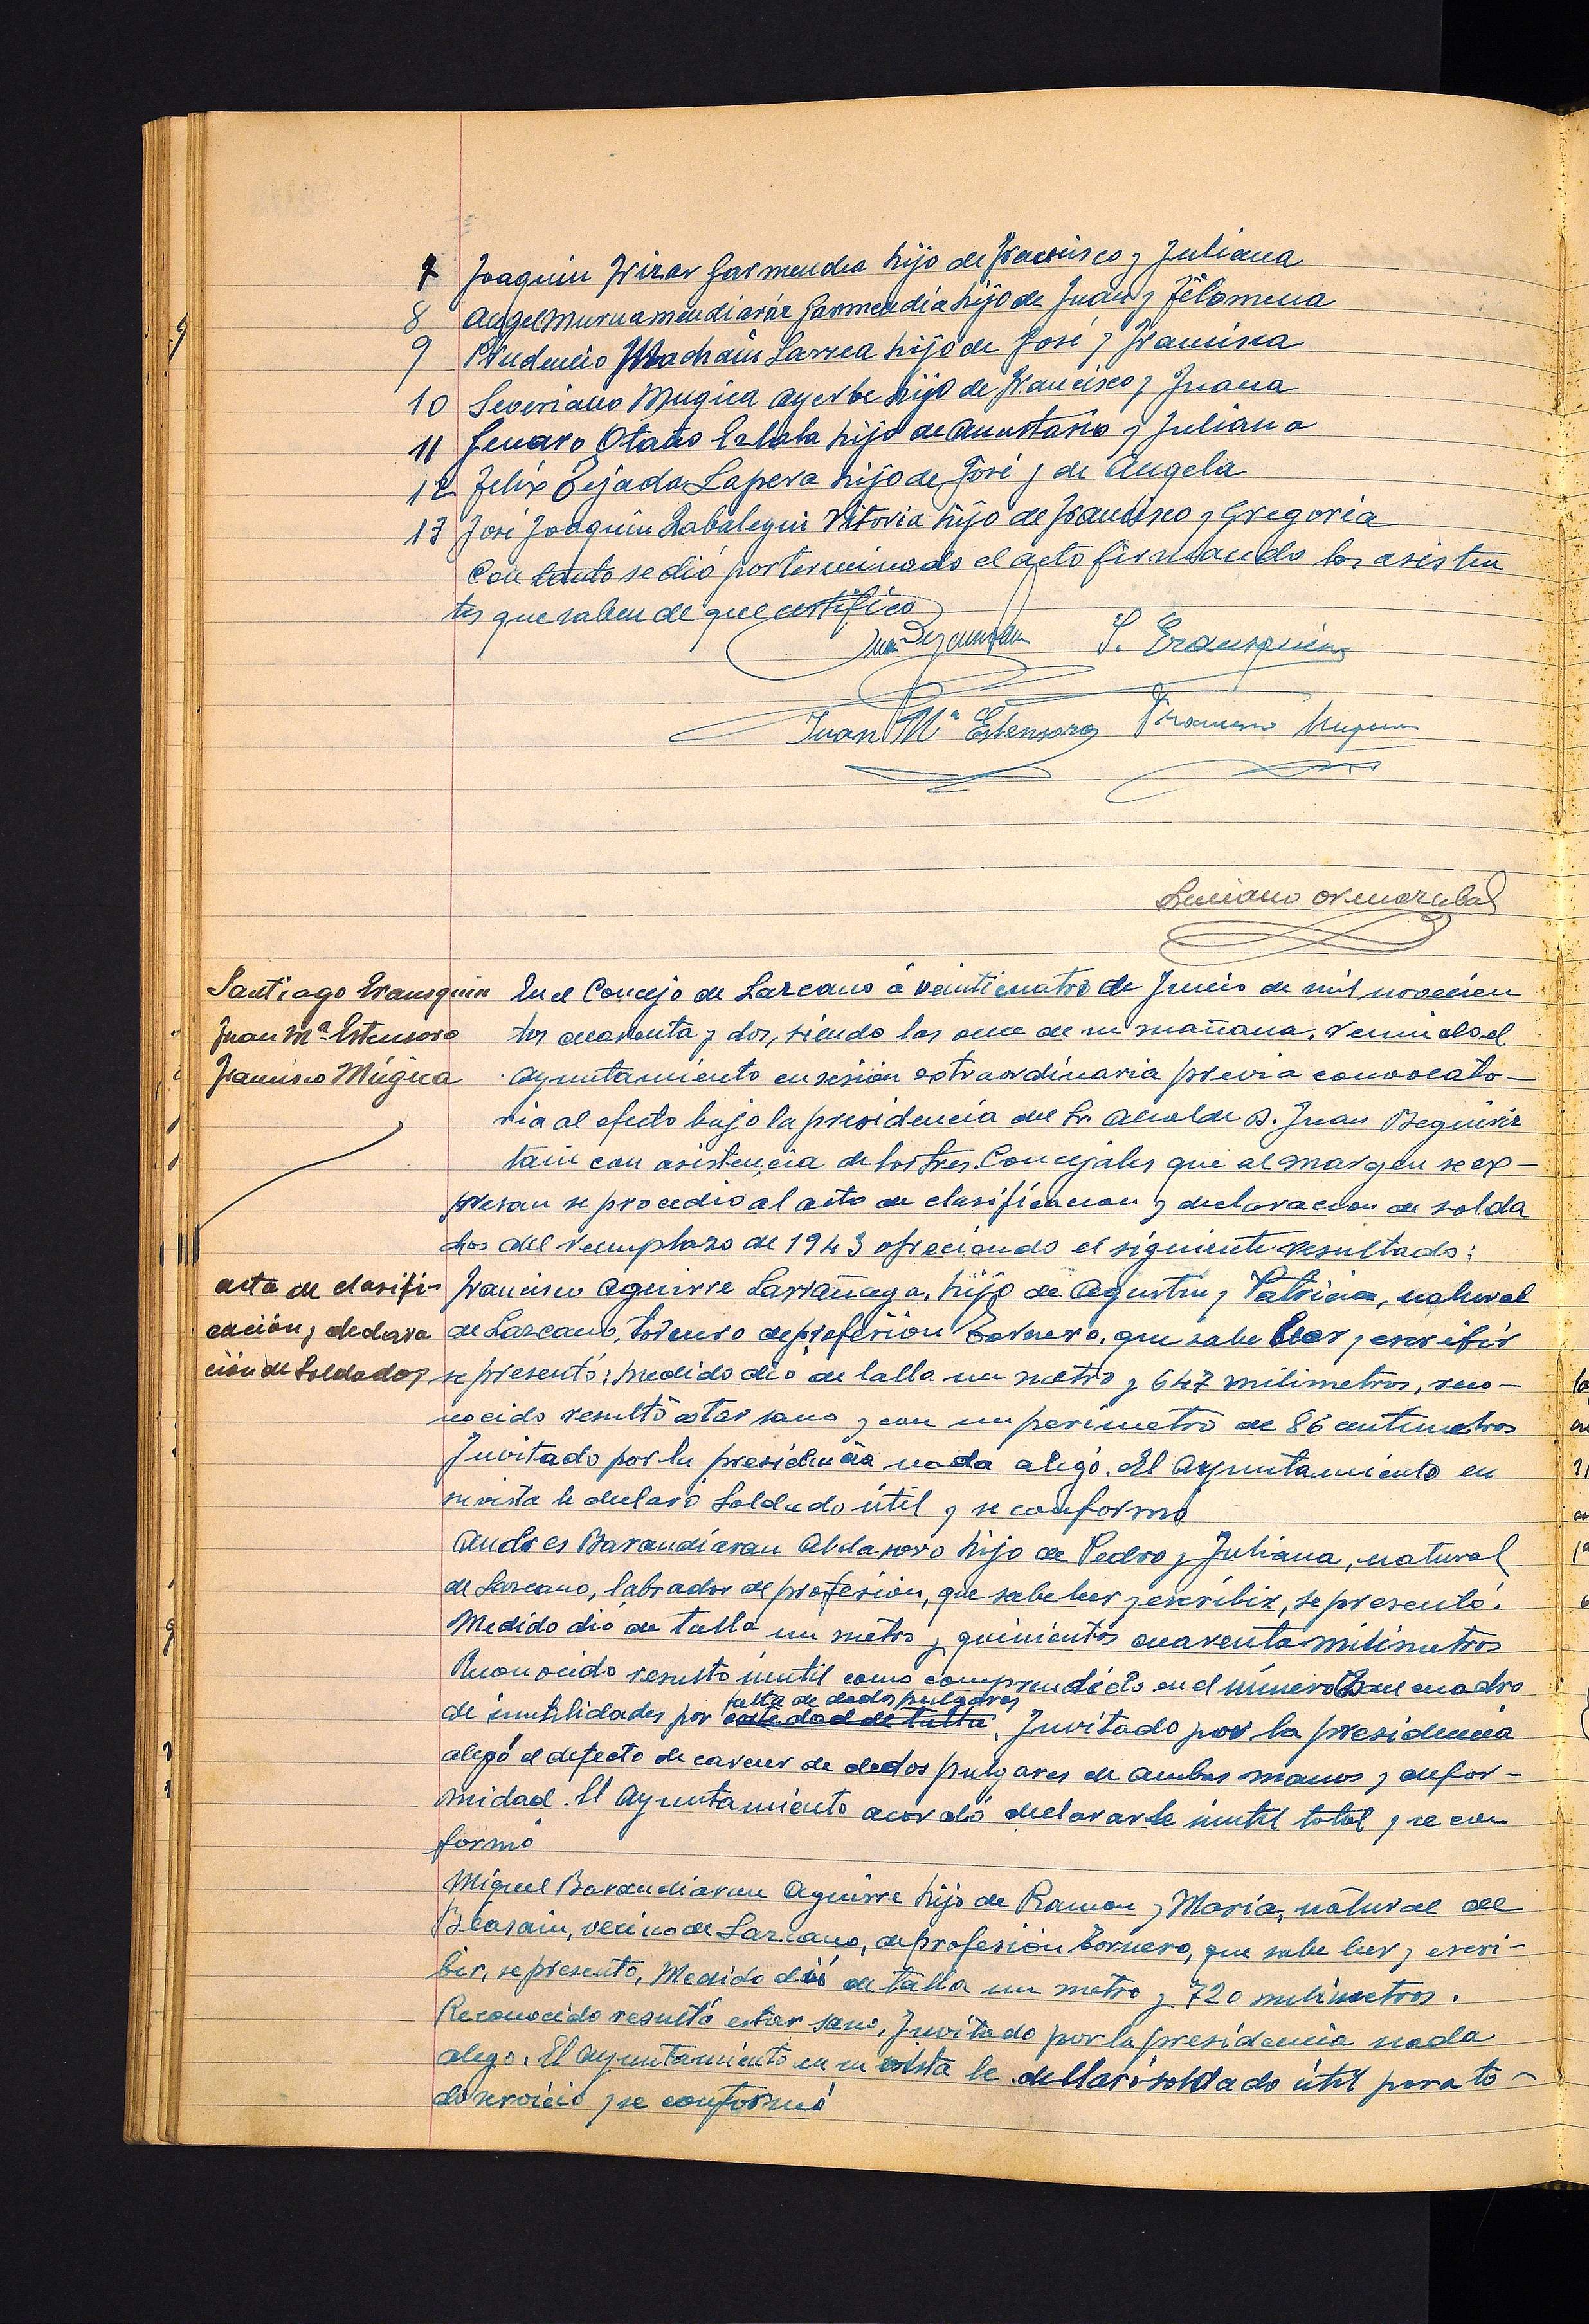 7 Joaquin Irizar Garmendia hijo de Francisco y Juliana
8 Angel Murua mendiaráz Garmendia hijo de Juan y Filomena
9 Prudencio Larrea hijo de José y Francisca
10 Severiano Mugica ayerbe hijo de Francisco y Juana
11 Genaro Otaño hijo de Anastasio y Juliana
12 Felix Tejada Lapera hijo de José y de Angela
13 José Joaquin Zabalegui Vitoria hijo de Francisco y Gregoria
Con tanto se dió por terminado el acto firmando los asisten
tes que saben de que certifico
S. Erausquin
Juan Mª Estensoro Francisco Mugica
Luciano Ormazabal
Santiago Erausquin
Juan Mª Estensoro
Francisco Múgica
En el Concejo de Lazcano á veinticuatro de Junio de mil novecien
tos cuarenta y dos, siendo las once de su mañana, reunido el
Ayuntamiento en sesion extraordinaria previa convocato-
ria al efecto bajo la presidencia del Sr. Alcalde D. Juan Beguiriz
tain con asistencia de los tres Concejales que al margen se ex-
presan se procedió al acto de clasificacion y declaracion de solda
dos del reemplazo de 1943 ofreciendo el siguiente resultado:
acta de clasifi-
cación y declara
ción de Soldados
Francisco Aguirre Larrañaga, hijo de Agustin y Patricia, natural
de Lazcano, tornero de profesion Tornero, que sabe leer y escribir
se presentó: medido dió de talla un metro y 647 milimetros, reco-
nocido resultó estar sano y con un perimetro de 86 centimetros
Invitado por la presidencia nada alegó. El Ayuntamiento en
su vista le declaró Soldado útil y se conformó
Andres Barandiaran Aldasoro hijo de Pedro y Juliana, natural
de Lazcano, labrador de profesion, que sabe leer y escribir, se presentó.
Medido dio de talla un metro y quinientos cuarenta milimetros
Reconocido resultó inutil como comprendido en el número del cuadro
falta de dedos pulgares
de inutilidades por cortedad de talla. Invitado por la presidencia
alegó el defecto de carecer de dedos pulgares de ambas manos y defor-
midad. El Ayuntamiento acordó declararle inutil total y se con
formó
Miguel Barandiaran Aguirre hijo de Ramon y Maria, natural de
Beasain, vecino de Lazcano, de profesion tornero, que sabe leer y escri-
bir, se presento, Medido dió de talla un metro y 720 milimetros.
Reconocido resultó estar sano, Invitado por la presidencia nada
alego. El Ayuntamiento en su vista le declaró soldado útil para to-
do servicio y se conformó